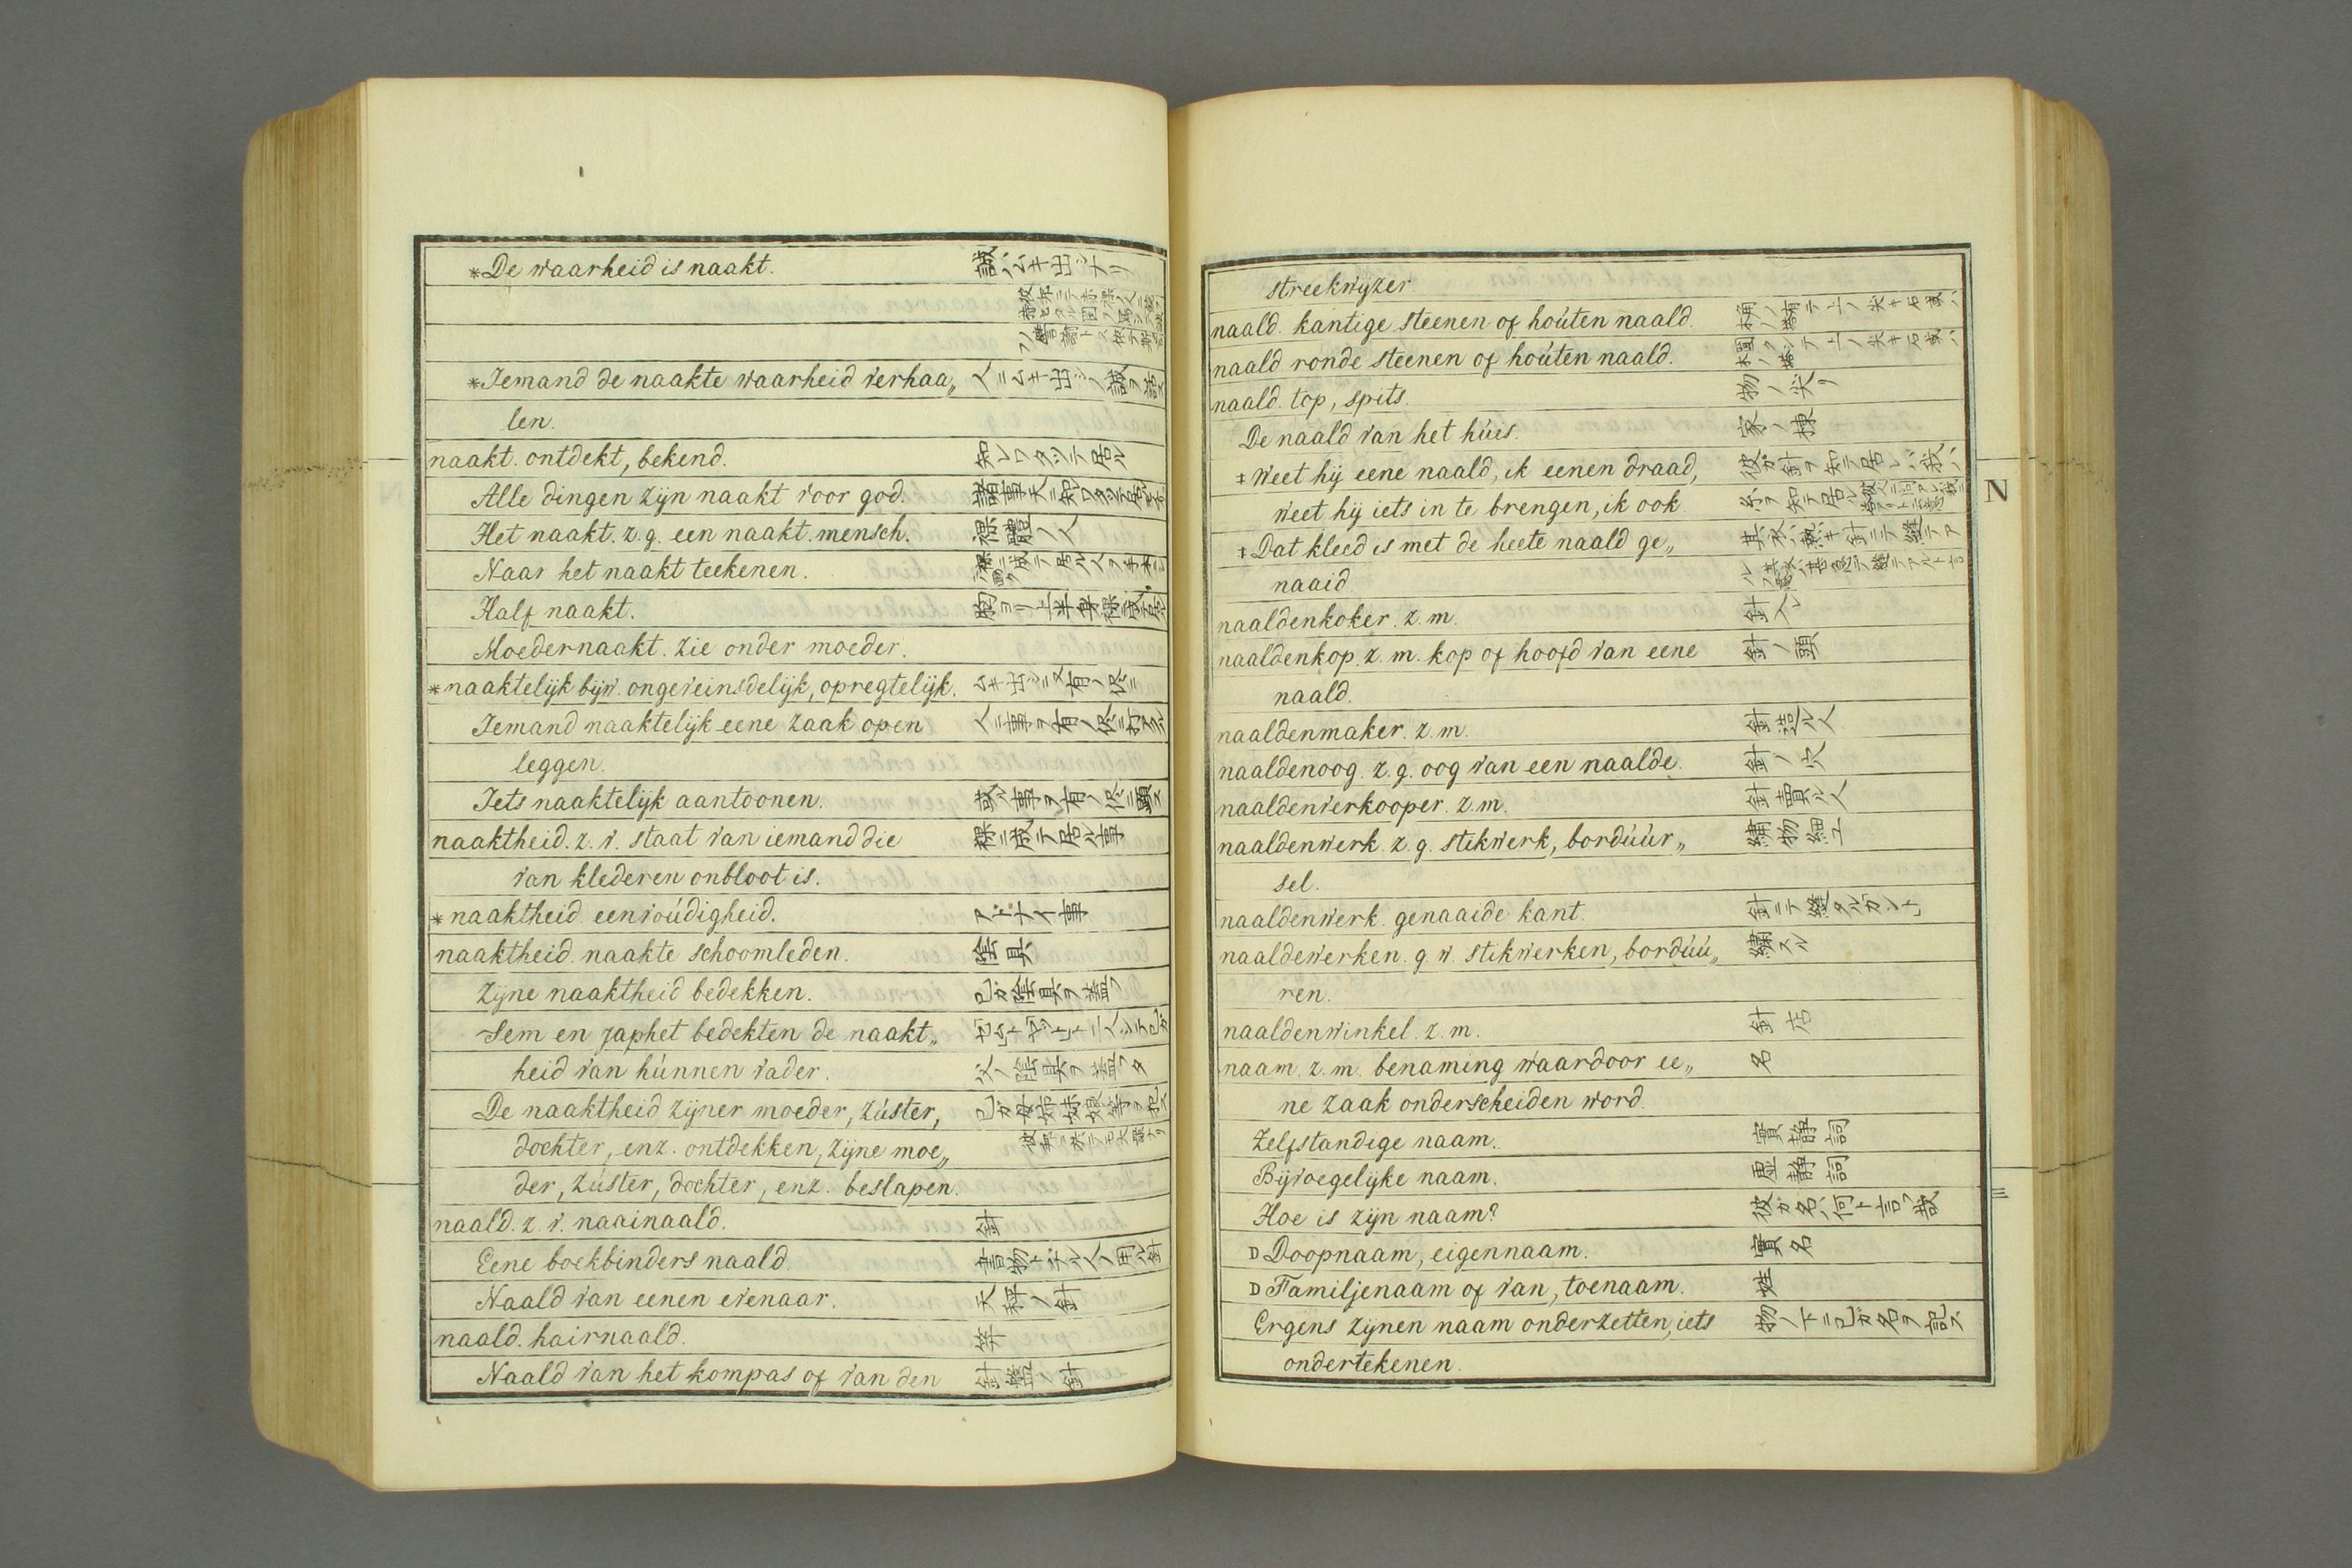 *De waarheid is naakt. 誠ハムキ出シナリ
*Iemand de naakte waarheid verhaa„ 人ニムキ出シノ誠ヲ話ス
len.
naakt. ontdekt, bekend. 知レワタツテ居ル
Alle dingen zijn naakt voor god. 諸事天ニ知レワタツテ居ル
Het naakt. z.g. een naakt mensch. 裸體ノ人
Naar het naakt teekenen.
Half naakt.
Moedernaakt. zie onder moeder.
*naaktelijk bijv. ongeveinsdelijk, opregtelijk. ムキ出シニ又有ノ侭ニ
Iemand naaktelijk eene zaak open
leggen.
Iets naaktelijk aantoonen. 或ル事ヲ有ノ侭ニ顕ス
naaktheid. z. v. staat van iemand die 裸ニ成テ居ル事
van klederen onbloot is.
*naaktheid. eenvoúdigheid. アドナイ事
naaktheid. naakte schoomleden. 陰具
Zijne naaktheid bedekken. 己ガ陰具ヲ蓋フ
Sem en japhet bedekten de naakt„
heid van húnnen vader. 父ノ陰具ヲ蓋フタ
De naaktheid zijner moeder, zúster, 己ガ母姉妹娘等ヲ犯ス
dochter, enz. ontdekken, zijne moe„
der, zúster, dochter, enz. beslapen.
naald. z. v. naainaald. 針
Eene boekbinders naald. 書物トヂル人ノ用ル針
Naald van eenen evenaar. 天秤ノ針
naald. hairnaald. 笄
Naald van het kompas of van den 針盤ノ針
streekwyzer
naald. kantige steenen of hoúten naald. 角ノ有テ上ノ尖キ石或ハ木ノ塔
naald ronde steenen of hoúten naald. 圓クシテ上ノ尖キ石或ハ木ノ塔
naald. top, spits. 物ノ尖リ
De naald van het húis. 家ノ棟
‡ Weet hij eene naald, ik eenen draad, 彼ガ針ヲ知テ居レバ我ハ
weet hij iets in te brengen, ik ook 糸ヲ知テ居ル
‡ Dat kleed is met de heete naald ge„ 其衣ハ熱キ針ニテ縫テア
naaid ル
naaldenkoker. z. m. 針入レ
naaldenkop. z. m. kop of hoofd van eene 針ノ頭
naald.
naaldenmaker. z. m. 針造ル人
naaldenoog. z. g. oog van een naalde. 針ノ穴
naaldenverkooper. z. m. 針賣ル人
naaldenwerk. z. g. stikwerk, bordúúr„ 繍物細工
sel.
naaldenwerk. genaaide kant. 針ニテ縫タルカント
naaldewerken. g. w. stikwerken, bordúú„ 繍スル
ren.
naaldenwinkel. z. m. 針店
naam. z. m. benaming waardoor ee„ 名
ne zaak onderscheiden word.
Zelfstandige naam. 實静詞
Bijvoegelijke naam. 虚静詞
Hoe is zijn naam? 彼ガ名ハ何ト言フ哉
D Doopnaam, eigennaam. 實名
D Familjenaam of van, toenaam. 姓
Ergens zijnen naam onderzetten, iets 物ノ下ニ己ガ名ヲ記ス
ondertekenen.
N